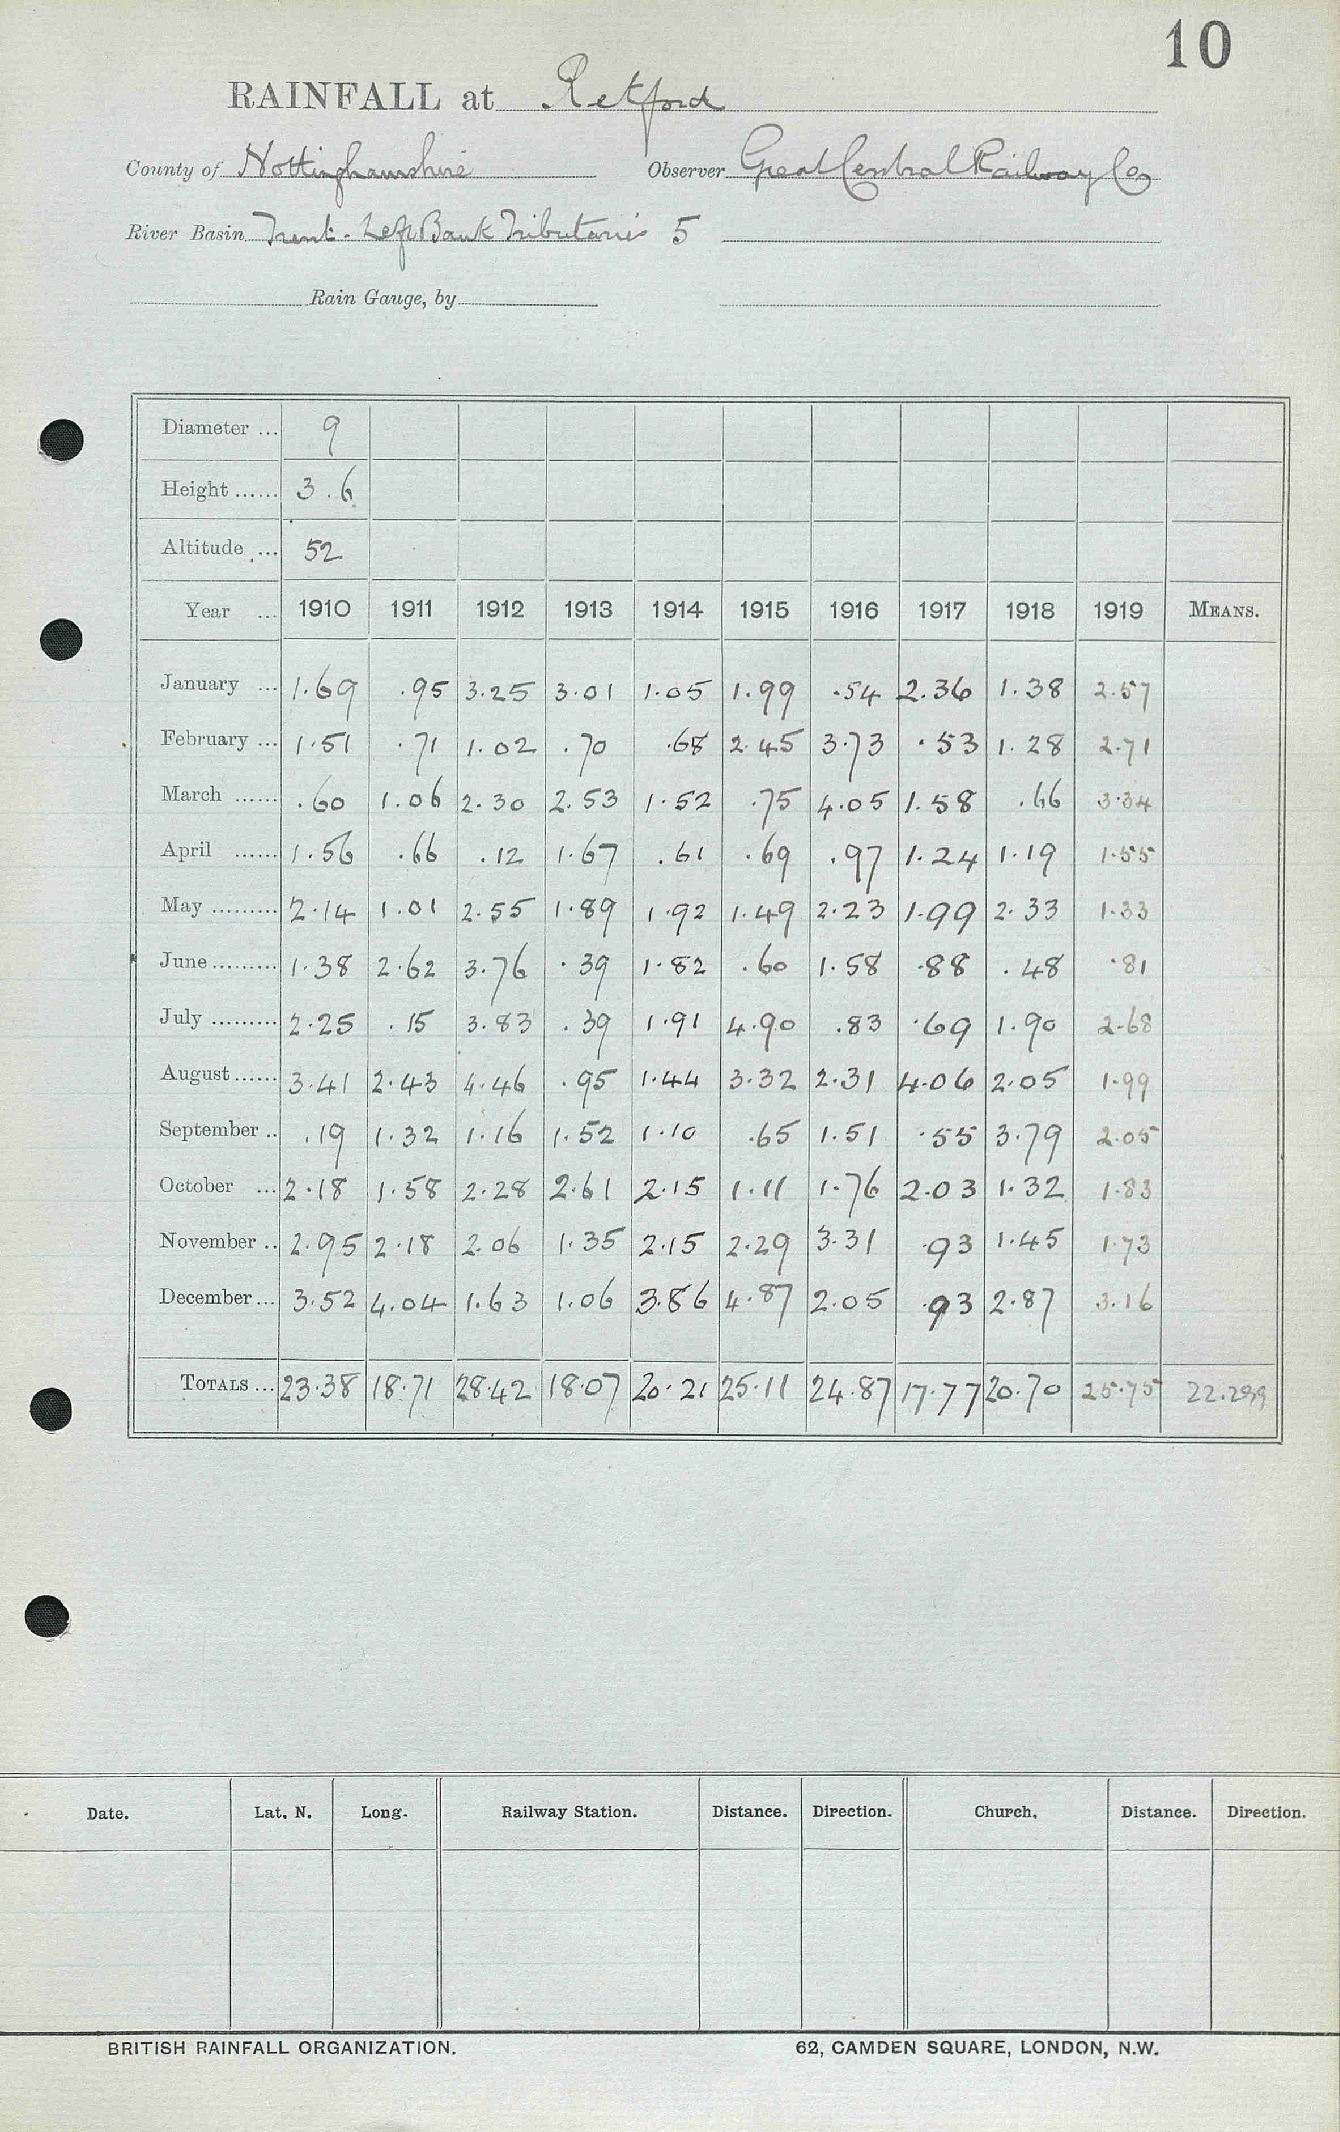 10
RAINFALL at Retford
County of Nottinghamshire Observer Great Central Railway Co
River Basin Trent - Left Bank Tributaries 5
Rain Gauge, by
Diameter ... 9
Height ...... 3.6
Altitude ... 52
Year ... 1910 1911 1912 1913 1914 1915 1916 1917 1918 1919 MEANS.
January ... 1.69 .95 3.25 3.01 1.05 1.99 .54 2.36 1.38 2.57
February ... 1.51 .71 1.02 .70 .68 2.45 3.73 .53 1.28 2.71
March ...... .60 1.06 2.30 2.53 1.52 .75 4.05 1.58 .66 3.34
April ...... 1.56 .66 .12 1.67 .61 .69 .97 1.24 1.19 1.55
May ......... 2.14 1.01 2.55 1.89 1.92 1.49 2.23 1.99 2.33 1.33
June ......... 1.38 2.62 3.76 .39 1.82 .60 1.58 .88 .48 .81
July ......... 2.25 .15 3.83 .39 1.91 4.90 .83 .69 1.90 2.68
August ...... 3.41 2.43 4.46 .95 1.44 3.32 2.31 4.06 2.05 1.99
September .. .19 1.32 1.16 1.52 1.10 .65 1.51 .55 3.79 2.05
October ... 2.18 1.58 2.28 2.61 2.15 1.11 1.76 2.03 1.32 1.83
November .. 2.95 2.18 2.06 1.35 2.15 2.29 3.31 .93 1.45 1.73
December ... 3.52 4.04 1.63 1.06 3.86 4.87 2.05 .93 2.87 3.16
TOTALS ... 23.38 18.71 28.42 18.07 20.21 25.11 24.87 17.77 20.70 25.75 22.299
Date. Lat. N. Long. Railway Station. Distance. Direction. Church. Distance. Direction.
BRITISH RAINFALL ORGANIZATION. 62, CAMDEN SQUARE, LONDON, N.W.